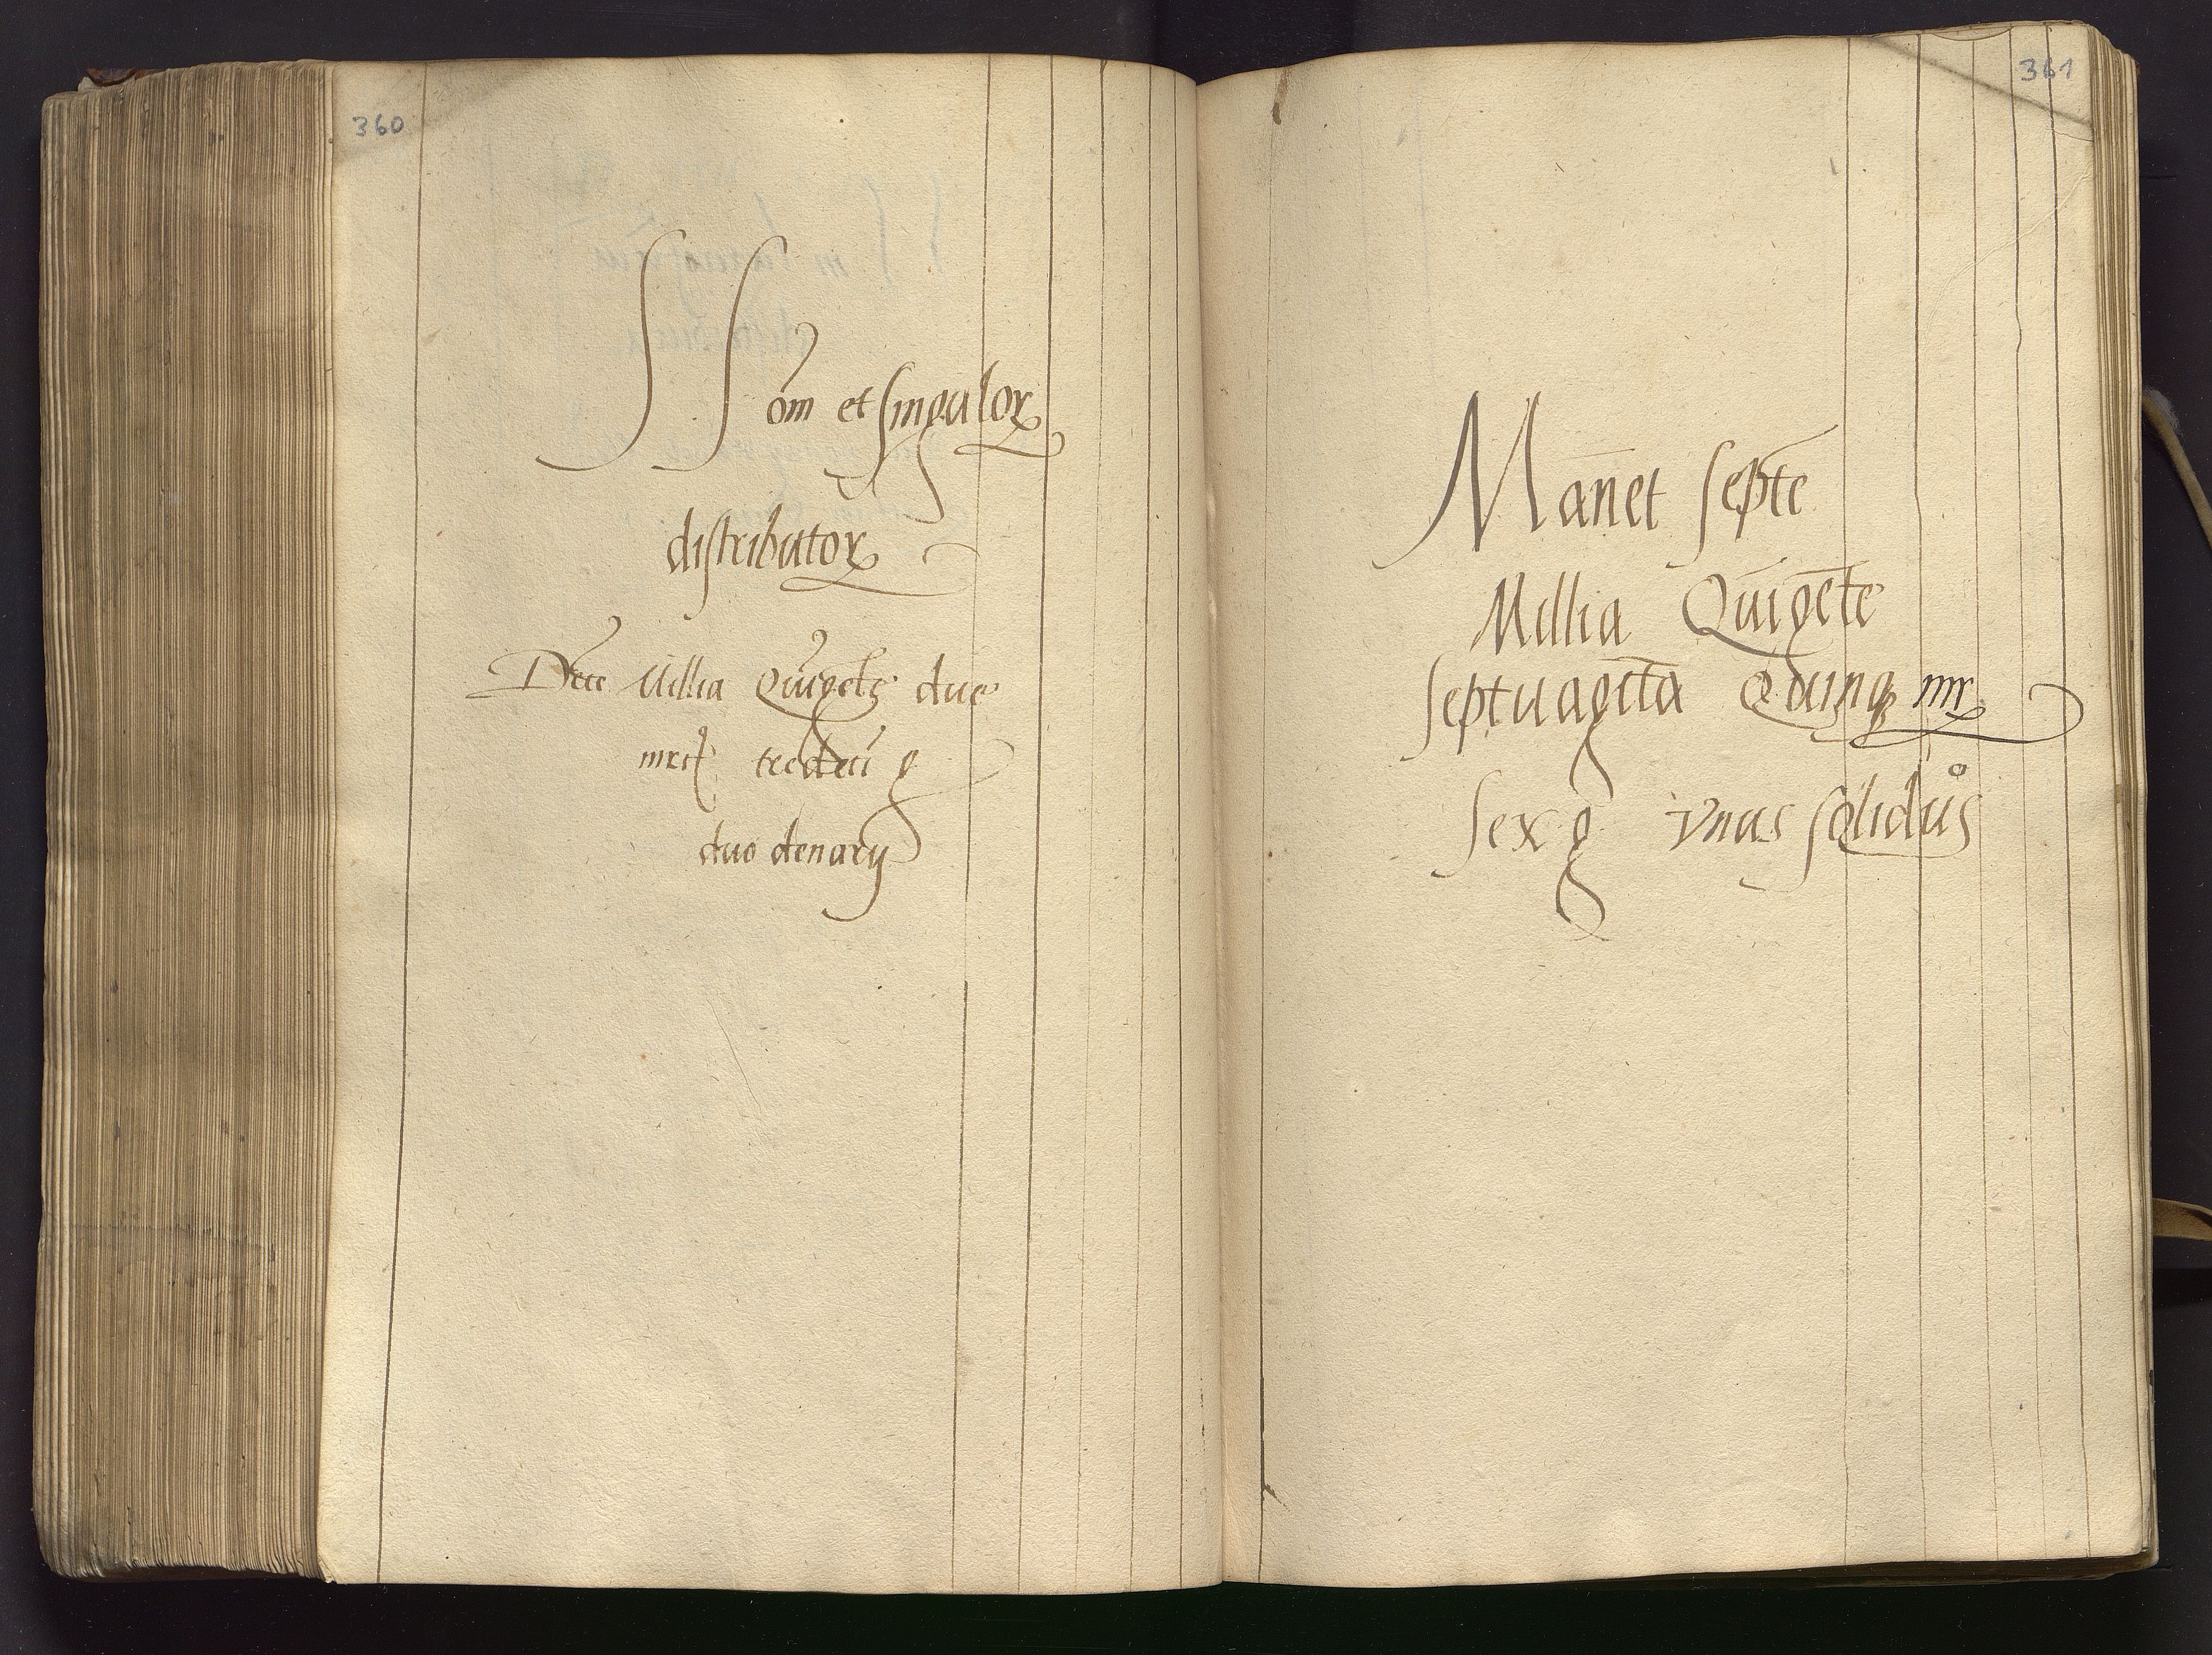 360
SS om et singulorꝝ
distributorꝝ
Dece Millia Quīgēte due
mrcꝭ tredeci g
duo denarij
361
Manēt septē
Millia Quīgētē
septuagīta Quinqꝫ mr
sex g vnus solidůs